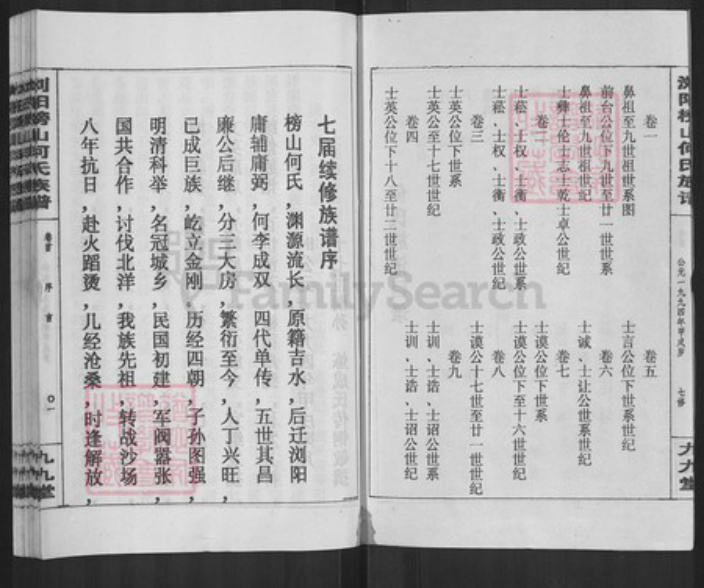 浏阳榜山何氏族谱
公元一九九四年甲戌岁
七修
九九堂
卷一
鼻祖至九世祖世系图
前台公位下九世至廿一世世系
鼻祖至九世祖世纪
士彝士伦士志士乾士卓公世纪
卷二
士嵇、士权、士衡、士政公世系
士嵇、士权、士衡、士政公世纪
卷三
士英公位下世系
士英公至十七世世纪
卷四
士英公位下十八至廿二世世纪
卷五
士言公位下世系世纪
卷六
士诚、士让公世系世纪
卷七
士谟公位下世系
士谟公位下至十六世世纪
卷八
士谟公十七世至廿一世世纪
卷九
士训、士诰、士诏公世系
士训、士诰、士诏公世纪
七届续修族谱序
榜山何氏，渊源流长，原籍吉水，后迁浏阳
庸辅庸弼，何李成双，四代单传，五世其昌
廉公后继，分三大房，繁衍至今，人丁兴旺，
已成巨族，屹立金刚，历经四朝，子孙图强，
明清科举，名冠城乡，民国初建，军阀嚣张，
国共合作，讨伐北洋，我族先祖，转战沙场，
八年抗日，赴火蹈烫，几经沧桑，时逢解放，
浏阳榜山何氏族谱
卷首
序言
〇一
九九堂
FamilySearch